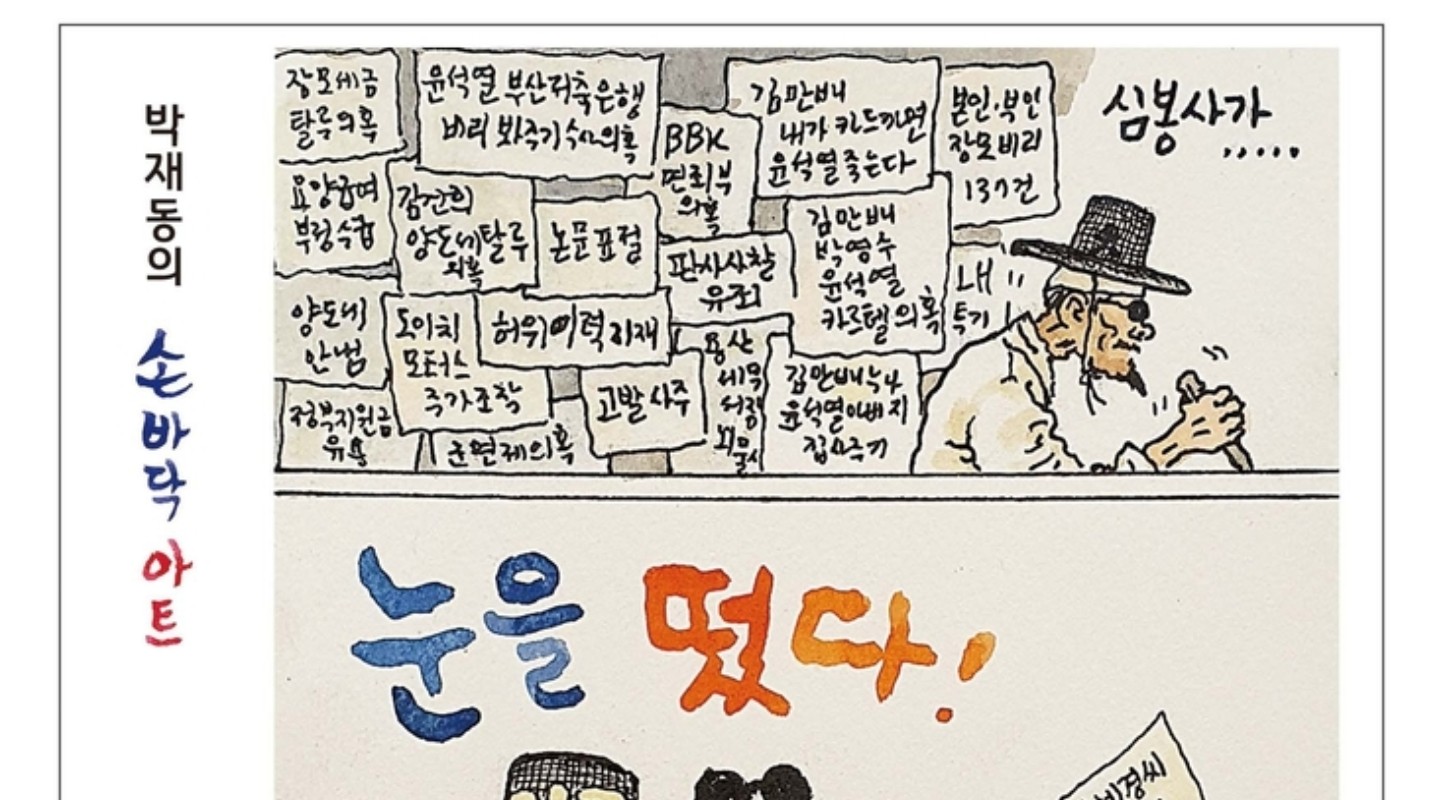 박재동의
손바닥
아트
장모세금
탈루의혹
윤석열 부산저축은행
비리 봐주기 수사의혹
BBK
면죄부
의혹
김만배
내가 카드까면
윤석열 죽는다
본인·부인
장모비리
137건
심봉사가
.....
요양급여
부정수급
김건희
양도세탈루
의혹
논문표절
판사사찰
유죄
김만배
박영수
윤석열
카르텔의혹
내
특기!
양도세
안냄
도이치
모터스
주가조작
허위이력기재
용산
세무
서장
뇌물
고발 사주
김만배누나
윤석열아버지
집사주기
정부지원금
유용
군면제의혹
눈을 떴다!